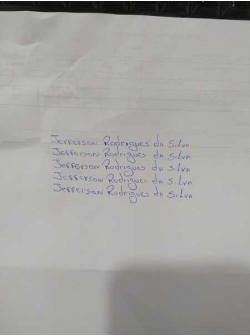 Jefferson Rodrigues da Silva
Jefferson Rodrigues da Silva
Jefferson Rodrigues da Silva
Jefferson Rodrigues da Silva
Jefferson Rodrigues da Silva